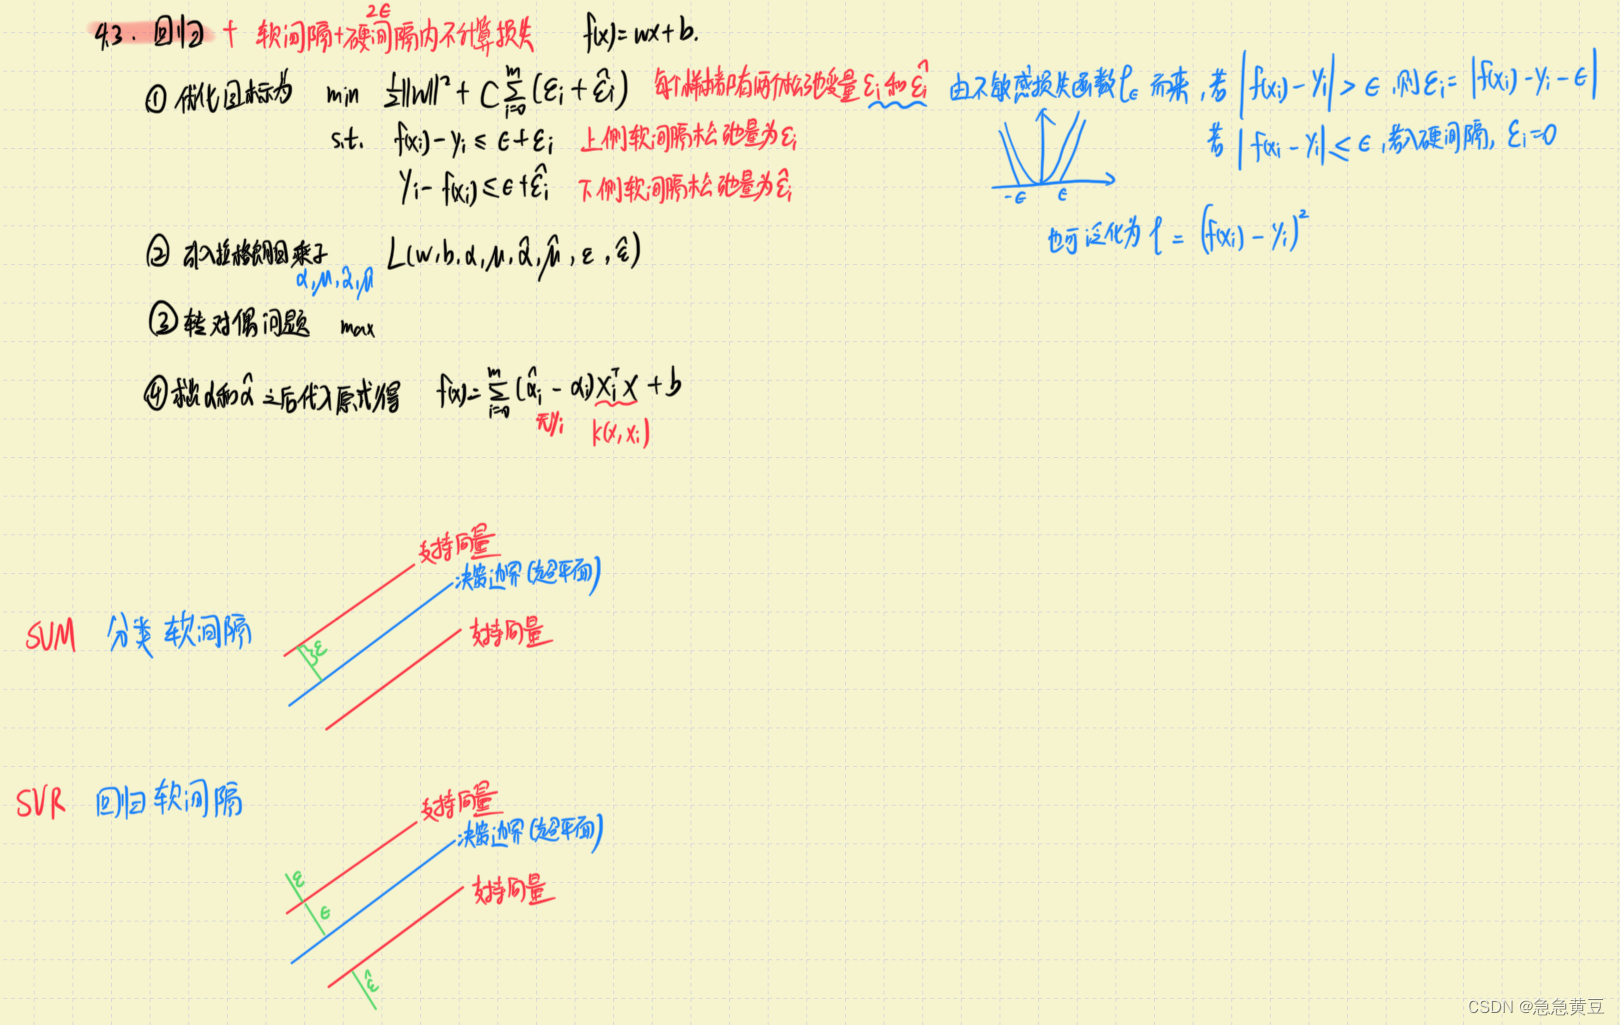 4.3. 回归 + 软间隔+硬间隔内不计算损失 f(x)=wx+b.
2ϵ
① 优化目标为 min ½||w||² + C∑ᵢ₌₀ᵐ(εᵢ+ε̂ᵢ) 每个样本都有两个松弛变量εᵢ和ε̂ᵢ
s.t. f(xᵢ)-yᵢ ≤ ϵ+εᵢ 上侧软间隔松弛量为εᵢ
yᵢ-f(xᵢ) ≤ ϵ+ε̂ᵢ 下侧软间隔松弛量为ε̂ᵢ
由不敏感损失函数ℓϵ而来,若 |f(xᵢ)-yᵢ| > ϵ,则εᵢ=|f(xᵢ)-yᵢ-ϵ|
若 |f(xᵢ-yᵢ| ≤ ϵ,若入硬间隔, εᵢ=0
-ϵ ϵ
也可泛化为 ℓ = (f(xᵢ)-yᵢ)²
② 引入拉格朗日乘子 L(w,b,α,μ,α̂,μ̂,ε,ε̂)
α,μ,α̂,μ̂
③ 转对偶问题 max
④ 求出α和α̂之后代入原式得 f(x)=∑ᵢ₌₀ᵐ(α̂ᵢ-αᵢ)xᵢᵀx+b
无yᵢ k(x,xᵢ)
支持向量
决策边界(超平面)
SVM 分类 软间隔
ε
支持向量
支持向量
SVR 回归 软间隔
决策边界(超平面)
ε
ϵ
支持向量
ε̂
CSDN @急急黄豆